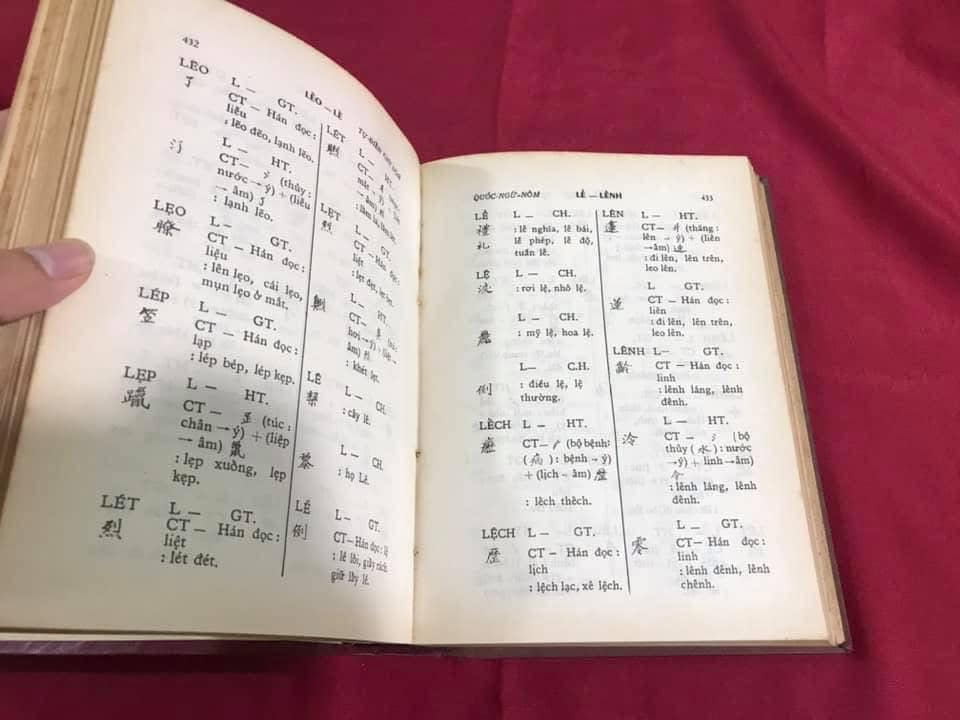 432
LẼO — LÊ
LẼO L — GT.
了 CT — Hán đọc :
liễu
: lẽo đẽo, lạnh lẽo.
L — HT.
CT — 氵 (thủy :
nước → ý) + (liễu
→ âm) 了
: lạnh lẽo.
LẸO L — GT.
CT — Hán đọc :
liệu
: lên lẹo, cái lẹo,
mụn lẹo ở mắt.
LÉP L — GT.
CT — Hán đọc :
lạp
: lép bép, lép kẹp.
LẸP L — HT.
躐 CT — (túc :
chân → ý) + (liệp
→ âm) 鼠
: lẹp xuống, lẹp
kẹp.
LÉT L — GT.
烈 CT — Hán đọc :
liệt
: lét đét.
LÉT L —
CT —
mắt → ý)
→ âm)
LẸT L — GT.
烈 CT — Hán đọc :
liệt
: lẹt đẹt,
L — HT.
CT —
hơi → ý) + (liệt →
âm) 烈
: khét lẹt.
LÊ L — CH.
: cây lê.
L — CH.
黎 : họ Lê.
LÊ L — GT.
例 CT — Hán đọc : lệ
QUỐC-NGỮ-NÔM LỄ — LÊNH 433
LỄ L — CH.
禮 : lễ nghĩa, lễ bái,
礼 lễ phép, lễ độ,
tuần lễ.
LỆ L — CH.
: rơi lệ, nhỏ lệ.
L — CH.
: mỹ lệ, hoa lệ.
L — C.H.
例 : điều lệ, lệ
thường.
LỆCH L — HT.
CT — (bộ bệnh:
(病) : bệnh → ý)
+ (lịch – âm) 歷
: lệch thếch.
LỆCH L — GT.
歷 CT — Hán đọc :
lịch
: lệch lạc, xê lệch.
LÊN L — HT.
CT — 升 (thăng :
lên → ý) + (liên
→ âm) 連
: đi lên, lên trên,
leo lên.
L GT.
蓮 CT — Hán đọc :
liên
: đi lên, lên trên,
leo lên.
LÊNH L — GT.
齡 CT — Hán đọc :
linh
: lênh láng, lênh
đênh.
L — HT.
泠 CT — 氵 (bộ
thủy (水) : nước
→ ý) + linh → âm)
令
: lênh láng, lênh
đênh.
L — GT.
零 CT — Hán đọc :
linh
: lênh đênh, lênh
chênh.